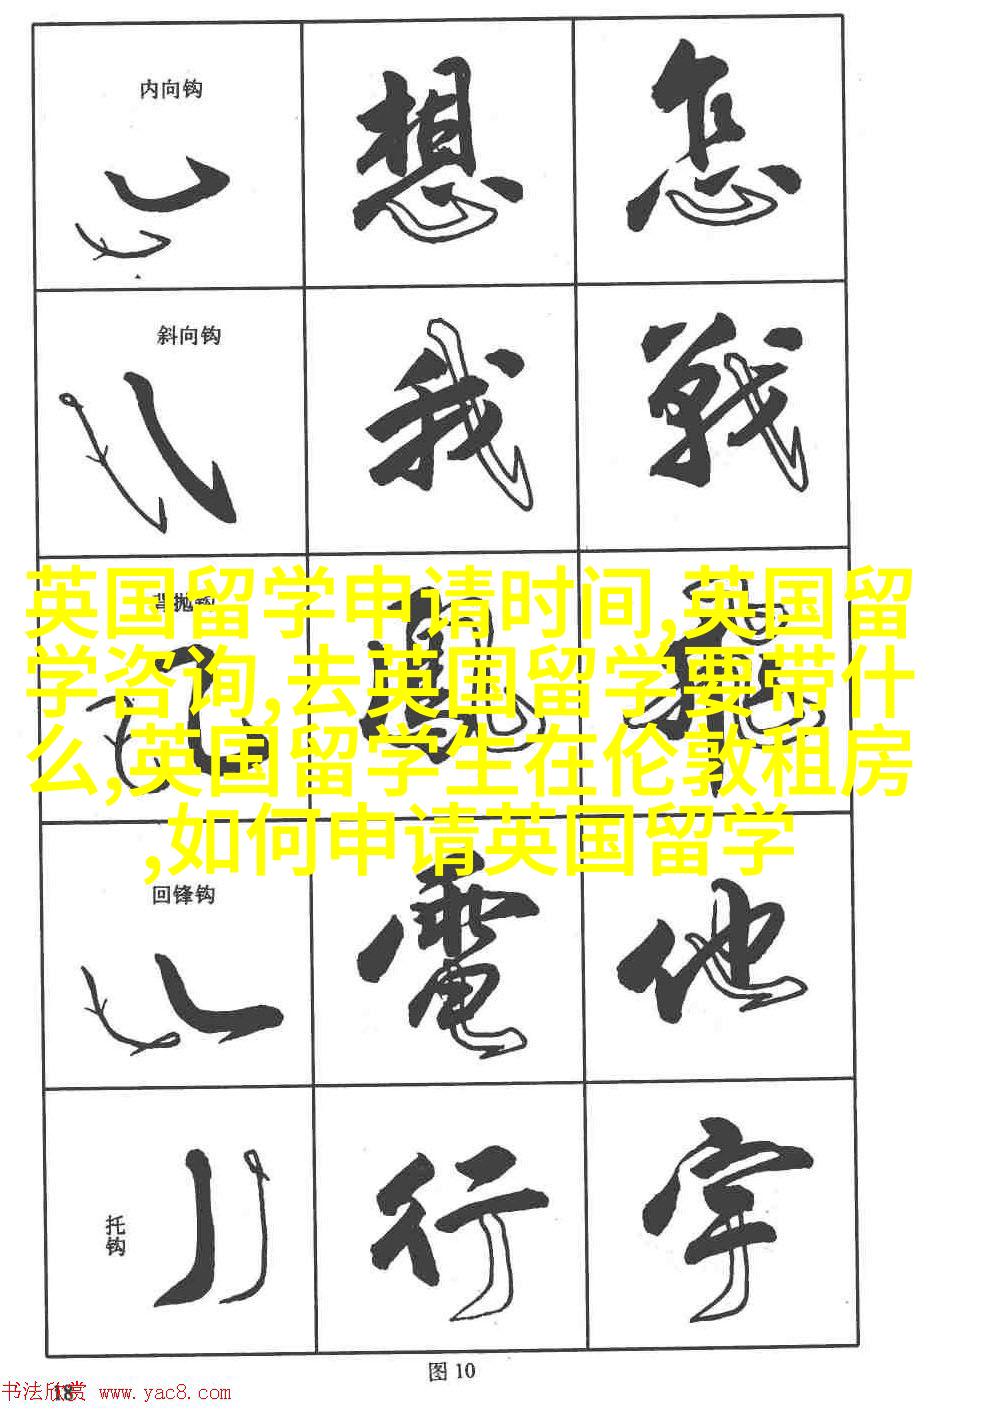 内向钩
想 怎
斜向钩
我 戦
背抛钩
英国留学申请时间,英国留
学咨询,去英国留学要带什
么,英国留学生在伦敦租房
,如何申请英国留学
回锋钩
電 他
托钩
行 宇
图 10
18
书法欣赏 www.yac8.com